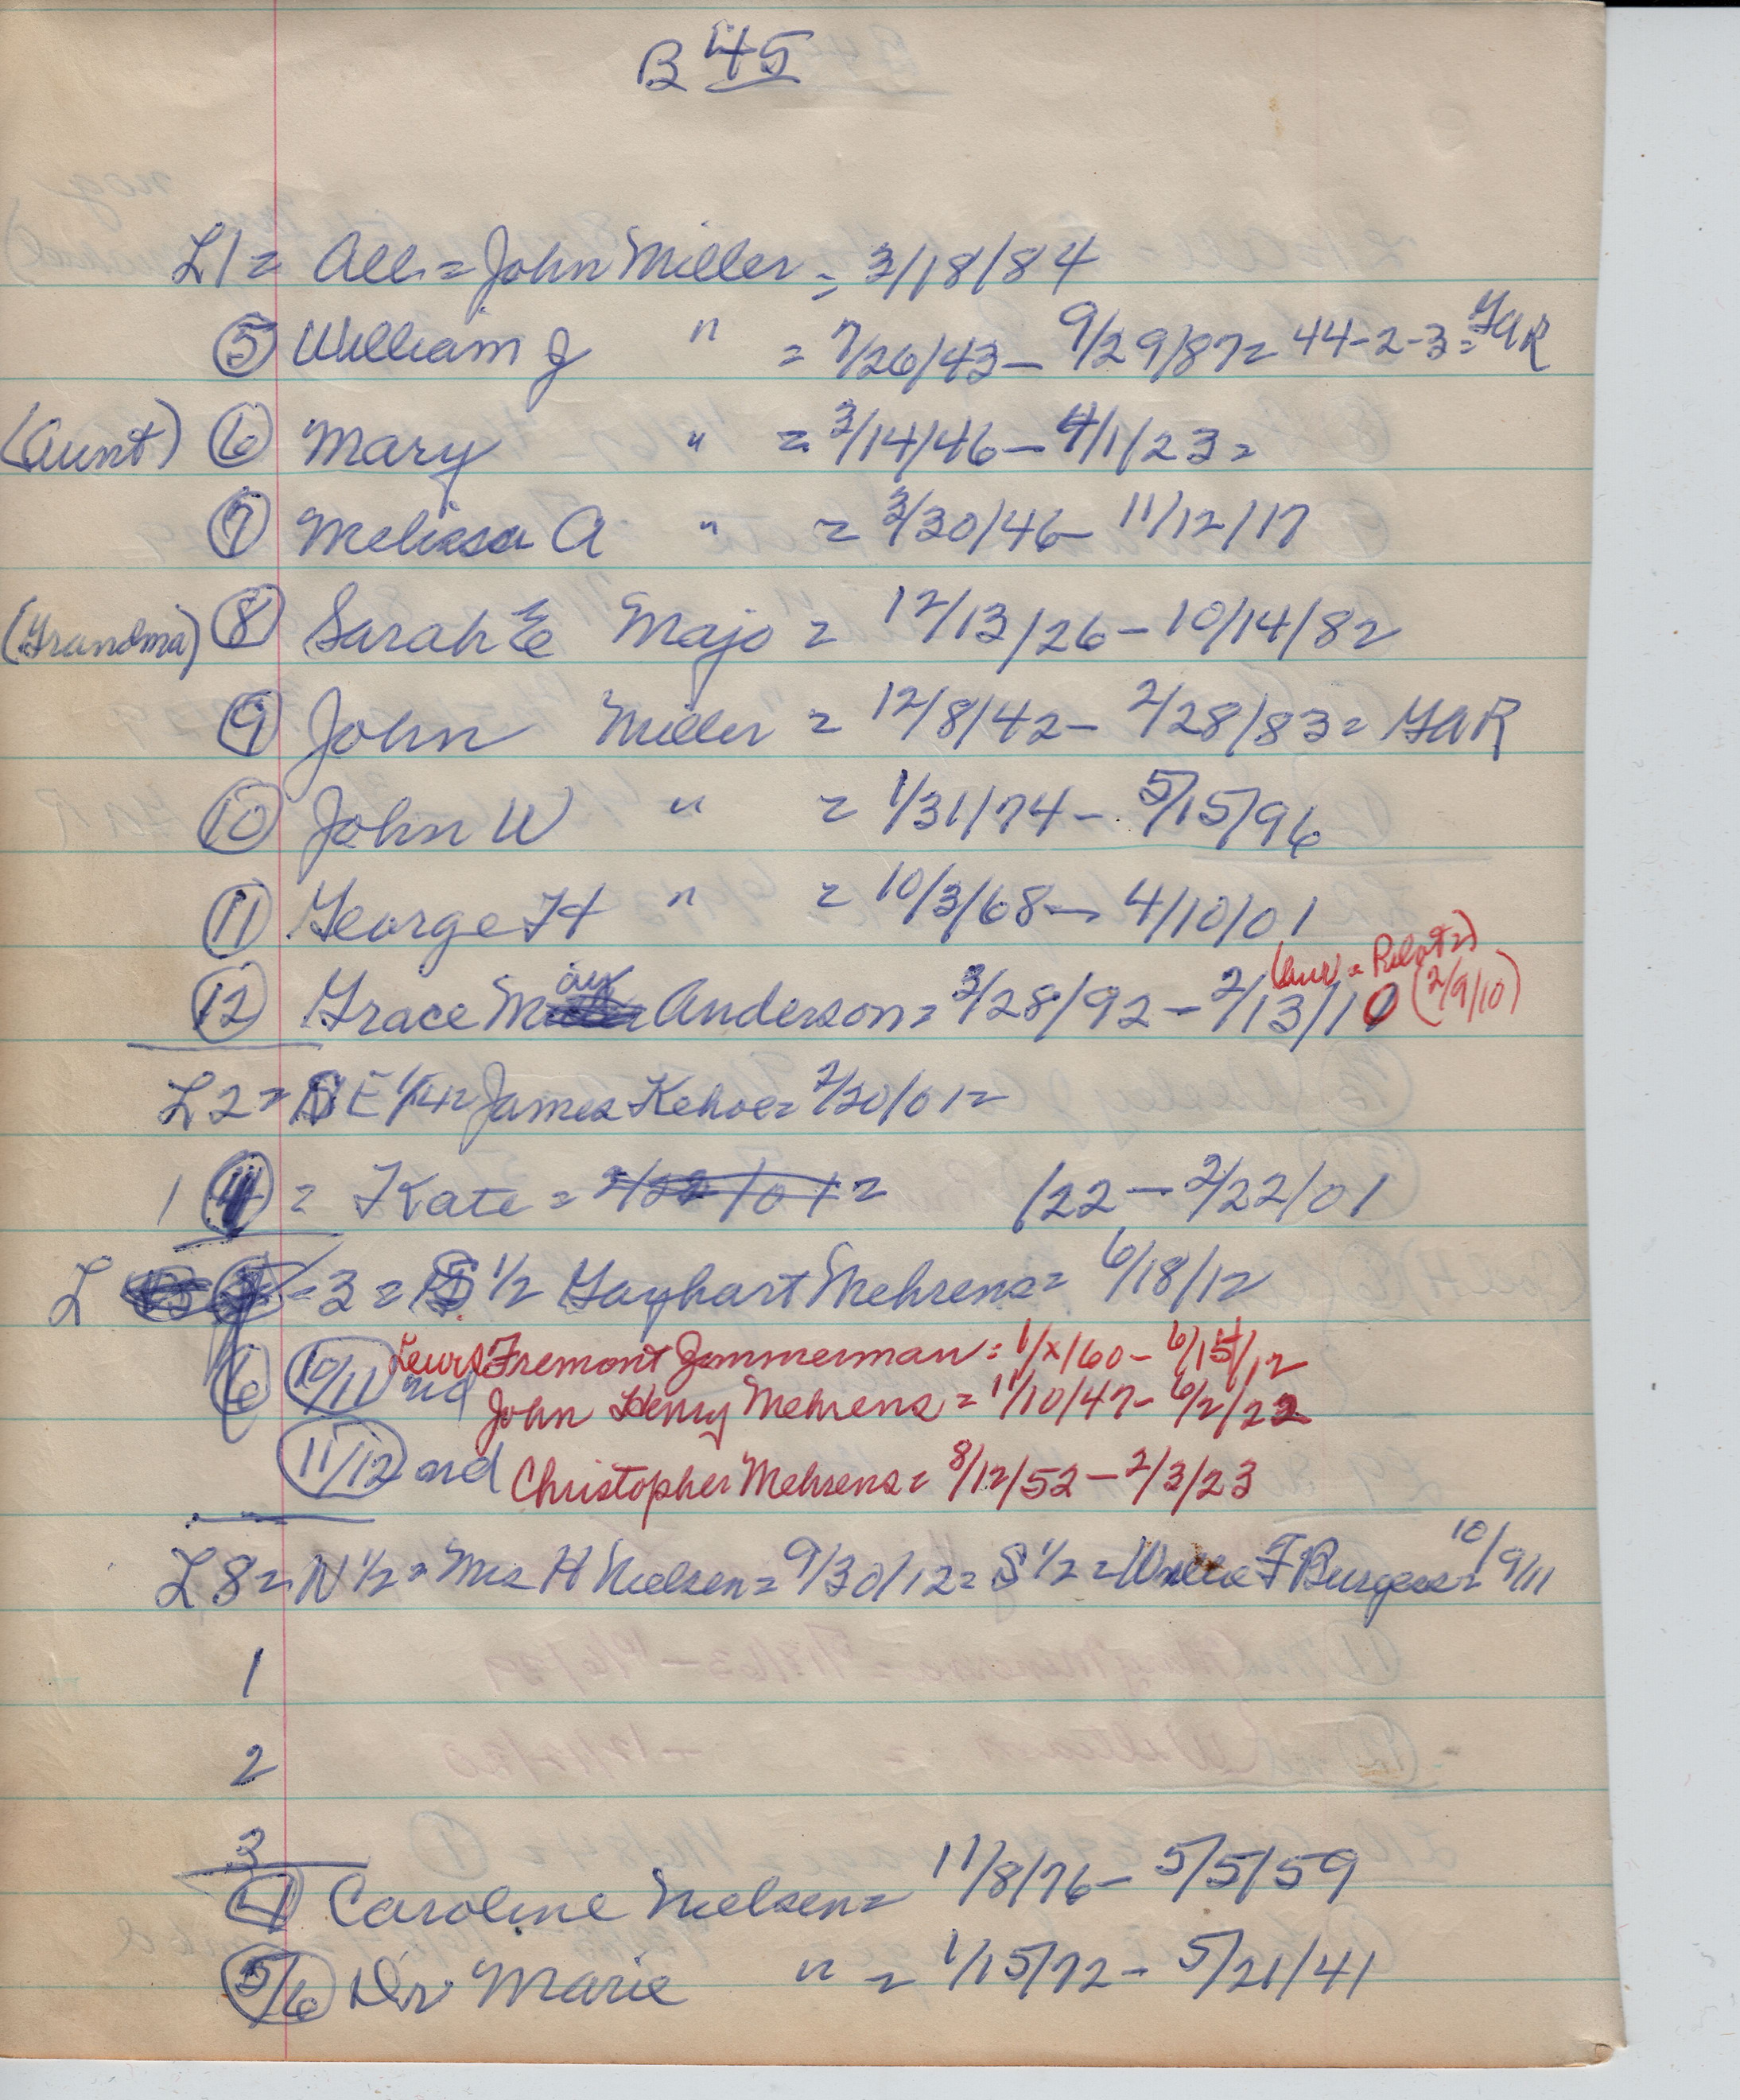 B 45
L1 = All = John Miller = 3/18/84
5 William J " = 7/26/43 - 9/29/87 = 44-2-3 = GAR
(Aunt) 6 Mary " = 3/14/46 - 4/1/23 =
7 Melissa A " = 3/30/46 - 11/12/17
(Grandma) 8 Sarah E Majo = 12/13/26 - 10/14/82
9 John Miller = 12/8/42 - 2/28/83 = GAR
10 John W " = 1/31/74 - 5/15/96
11 George H " = 10/3/68 - 4/10/01
12 Grace May Anderson = 3/28/92 - 2/13/10 (2/9/10)
L2 = SE 1/4 = James Kehoe = 2/20/01 =
1 4 = Kate = 2/22/01 = /22 - 2/22/01
L 3 = S 1/2 Gayhart Mehrens = 6/18/12
6 10/11 nd Lewis Fremont Zimmerman = 1/x/60 - 6/15/12
John Henry Mehrens = 11/10/47 - 6/2/22
11/12 nd Christopher Mehrens = 8/12/52 - 2/3/23
L8 = N 1/2 = Mrs H Nielsen = 9/30/12 = S 1/2 = F Burgess = 10/9/11
1
2
3
4 Caroline Nielsen = 11/8/76 - 5/5/59
5/6 Dr Marie " = 1/15/72 - 5/21/41